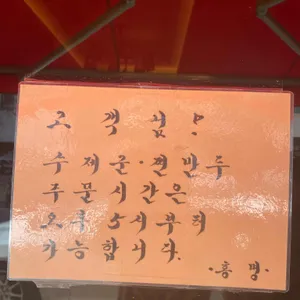 고객님!
수제군·찐만두
주문시간은
오후 5시부터
가능합니다.
·홍명·